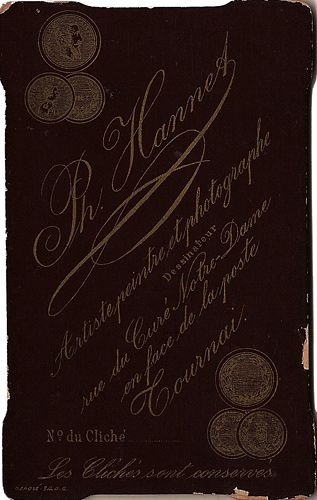 Ph. Hannet
Artiste peintre et photographe
Dessinateur
rue du Curé Notre-Dame
en face de la poste
Tournai.
No du Cliché
Les Clichés sont conservés.